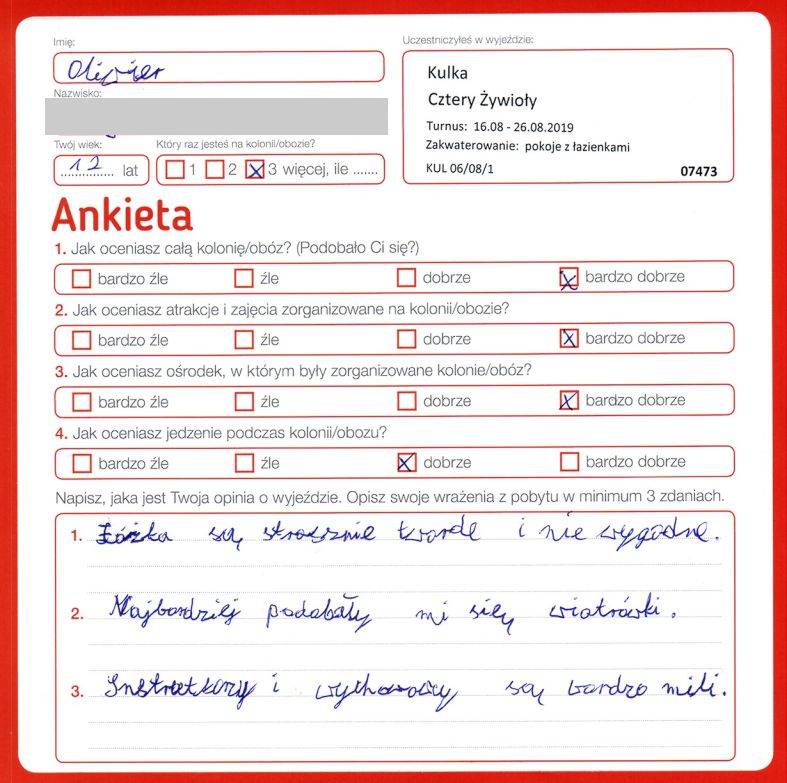 Imię:
Oliwier
Nazwisko:
Twój wiek:
12 lat
Który raz jesteś na kolonii/obozie?
1 2 3 więcej, ile .......
Uczestniczyłeś w wyjeździe:
Kulka
Cztery Żywioły
Turnus: 16.08 - 26.08.2019
Zakwaterowanie: pokoje z łazienkami
KUL 06/08/1 07473
Ankieta
1. Jak oceniasz całą kolonię/obóz? (Podobało Ci się?)
bardzo źle źle dobrze bardzo dobrze
2. Jak oceniasz atrakcje i zajęcia zorganizowane na kolonii/obozie?
bardzo źle źle dobrze bardzo dobrze
3. Jak oceniasz ośrodek, w którym były zorganizowane kolonie/obóz?
bardzo źle źle dobrze bardzo dobrze
4. Jak oceniasz jedzenie podczas kolonii/obozu?
bardzo źle źle dobrze bardzo dobrze
Napisz, jaka jest Twoja opinia o wyjeździe. Opisz swoje wrażenia z pobytu w minimum 3 zdaniach.
1. Łóżka są strasznie twarde i nie wygodne.
2. Najbardziej podobały mi się wiatrówki.
3. Instruktorzy i wychowawcy są bardzo mili.